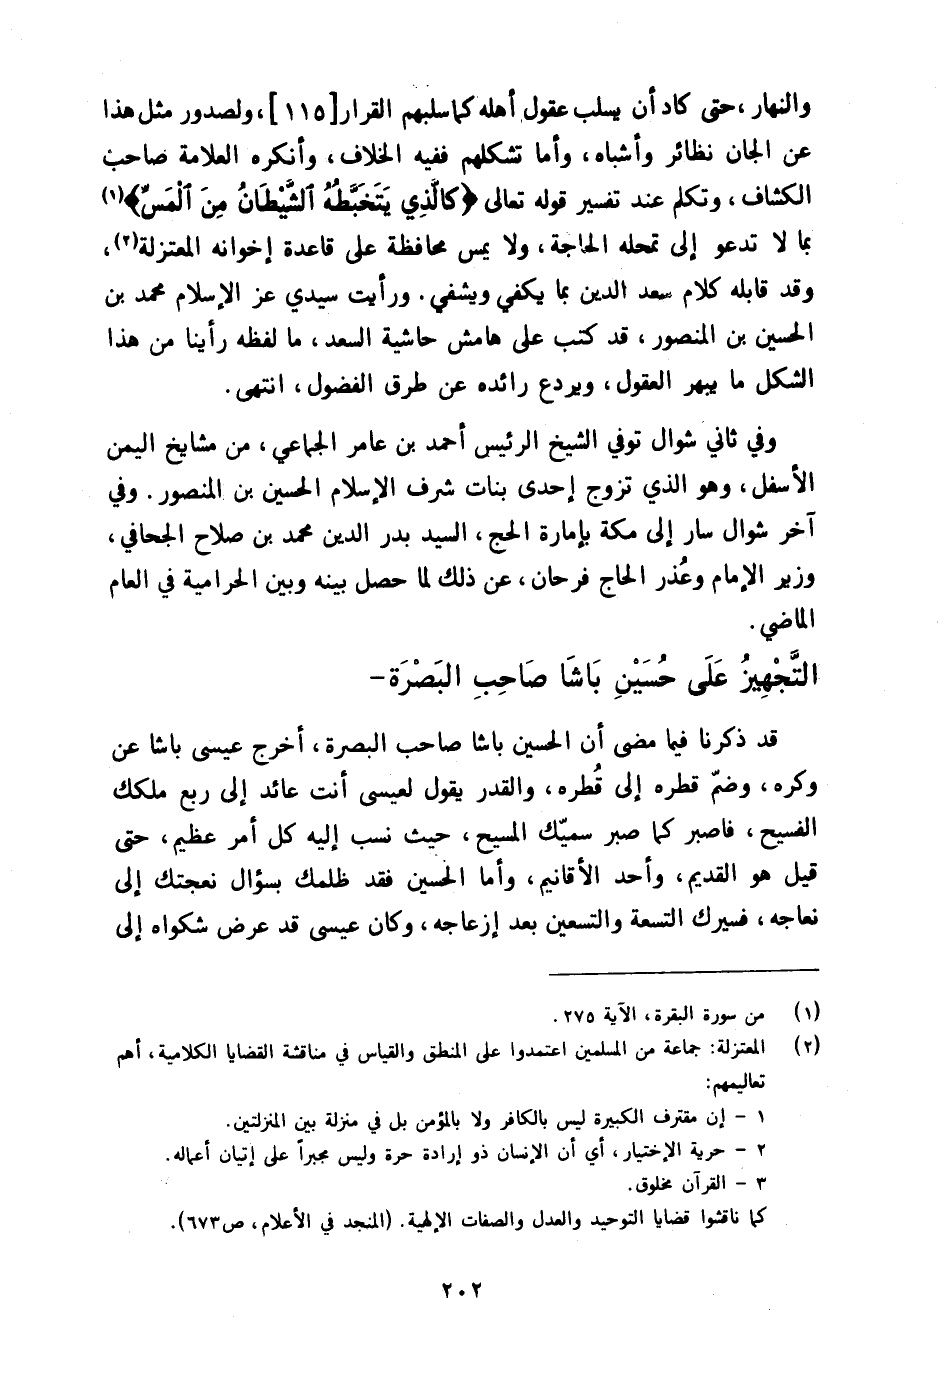 والنهار ،حتى كاد أن يسلب عقول أهله كما سلبهم القرار [١١٥]، ولصدور مثل هذا
عن الجان نظائر وأشباه، وأما تشكلهم ففيه الخلاف، وأنكره العلامة صاحب
الكشاف، وتكلم عند تفسير قوله تعالى ﴿كَالَّذِي يَتَخَبَّطُهُ ٱلشَّيْطَانُ مِنَ ٱلْمَسِّ﴾(١)
بما لا تدعو إلى تمحله الحاجة، ولا يمس محافظة على قاعدة إخوانه المعتزلة(٢)،
وقد قابله كلام سعد الدين بما يكفي ويشفي. ورأيت سيدي عز الإسلام محمد بن
الحسين بن المنصور، قد كتب على هامش حاشية السعد، ما لفظه رأينا من هذا
الشكل ما يبهر العقول، ويردع رائده عن طرق الفضول، انتهى.
وفي ثاني شوال توفي الشيخ الرئيس أحمد بن عامر الجماعي، من مشايخ اليمن
الأسفل، وهو الذي تزوج إحدى بنات شرف الإسلام الحسين بن المنصور. وفي
آخر شوال سار إلى مكة بإمارة الحج، السيد بدر الدين محمد بن صلاح الجحافي،
وزير الإمام وعُذر الحاج فرحان، عن ذلك لما حصل بينه وبين الحرامية في العام
الماضي.
التَّجْهِيزُ عَلَى حُسَيْنِ بَاشَا صَاحِبِ البَصْرَة-
قد ذكرنا فيما مضى أن الحسين باشا صاحب البصرة، أخرج عيسى باشا عن
وكره، وضمّ قطره إلى قُطره، والقدر يقول لعيسى أنت عائد إلى ربع ملكك
الفسيح، فاصبر كما صبر سميّك المسيح، حيث نسب إليه كل أمر عظيم، حتى
قيل هو القديم، وأحد الأقانيم، وأما الحسين فقد ظلمك بسؤال نعجتك إلى
نعاجه، فسيرك التسعة والتسعين بعد إزعاجه، وكان عيسى قد عرض شكواه إلى
(١) من سورة البقرة، الآية ٢٧٥.
(٢) المعتزلة: جماعة من المسلمين اعتمدوا على المنطق والقياس في مناقشة القضايا الكلامية، أهم
تعاليمهم:
١ - إن مقترف الكبيرة ليس بالكافر ولا بالمؤمن بل في منزلة بين المنزلتين.
٢ - حرية الإختيار، أي أن الإنسان ذو إرادة حرة وليس مجبراً على إتيان أعماله.
٣ - القرآن مخلوق.
كما ناقشوا قضايا التوحيد والعدل والصفات الإلهية. (المنجد في الأعلام، ص٦٧٣).
٢٠٢